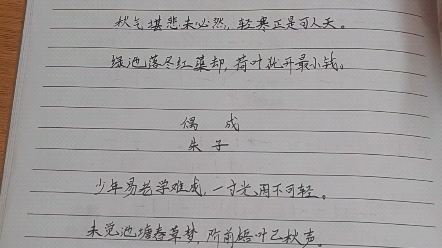 秋气堪悲未必然，轻寒正是可人天。
绿池落尽红蕖却，荷叶犹开最小钱。
偶 成
朱 子
少年易老学难成，一寸光阴不可轻。
未觉池塘春草梦，阶前梧叶已秋声。